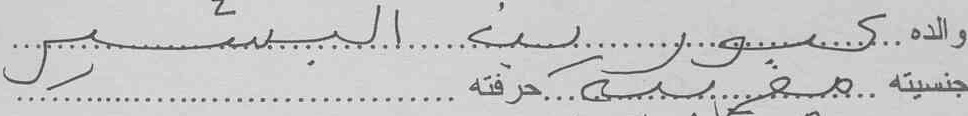 والده كبوريت البشير
جنسيته مغربية حرفته